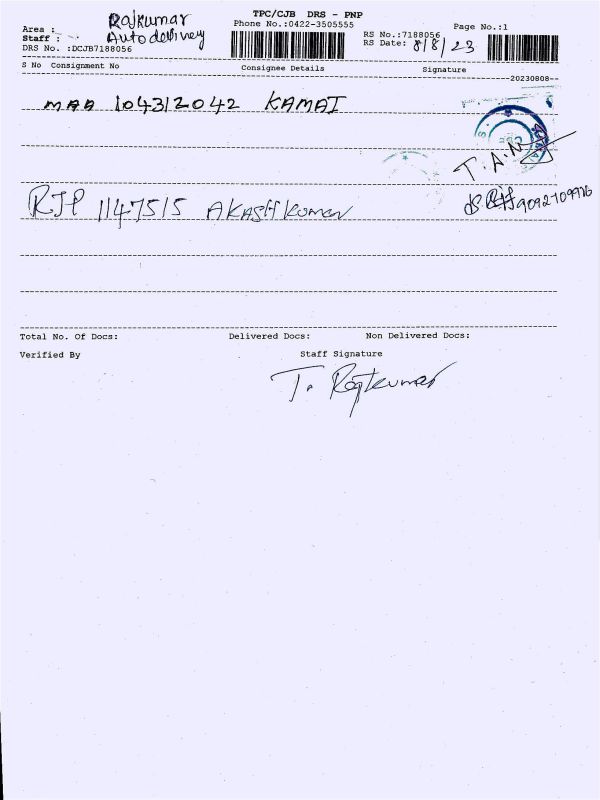 TPC/CJB DRS - PNP
Area : Rajkumar
Phone No.:0422-3505555
Page No.:1
Staff : Autodelivey
RS No.:7188056
DRS No. :DCJB7188056
RS Date: 8/8/23
S No Consignment No Consignee Details Signature
20230808
MAA 104312042 KAMAI
T.A.N
RJP 1147515 AKASH Kumar
9092709976
Total No. Of Docs: Delivered Docs: Non Delivered Docs:
Verified By Staff Signature
T. Rajkumar